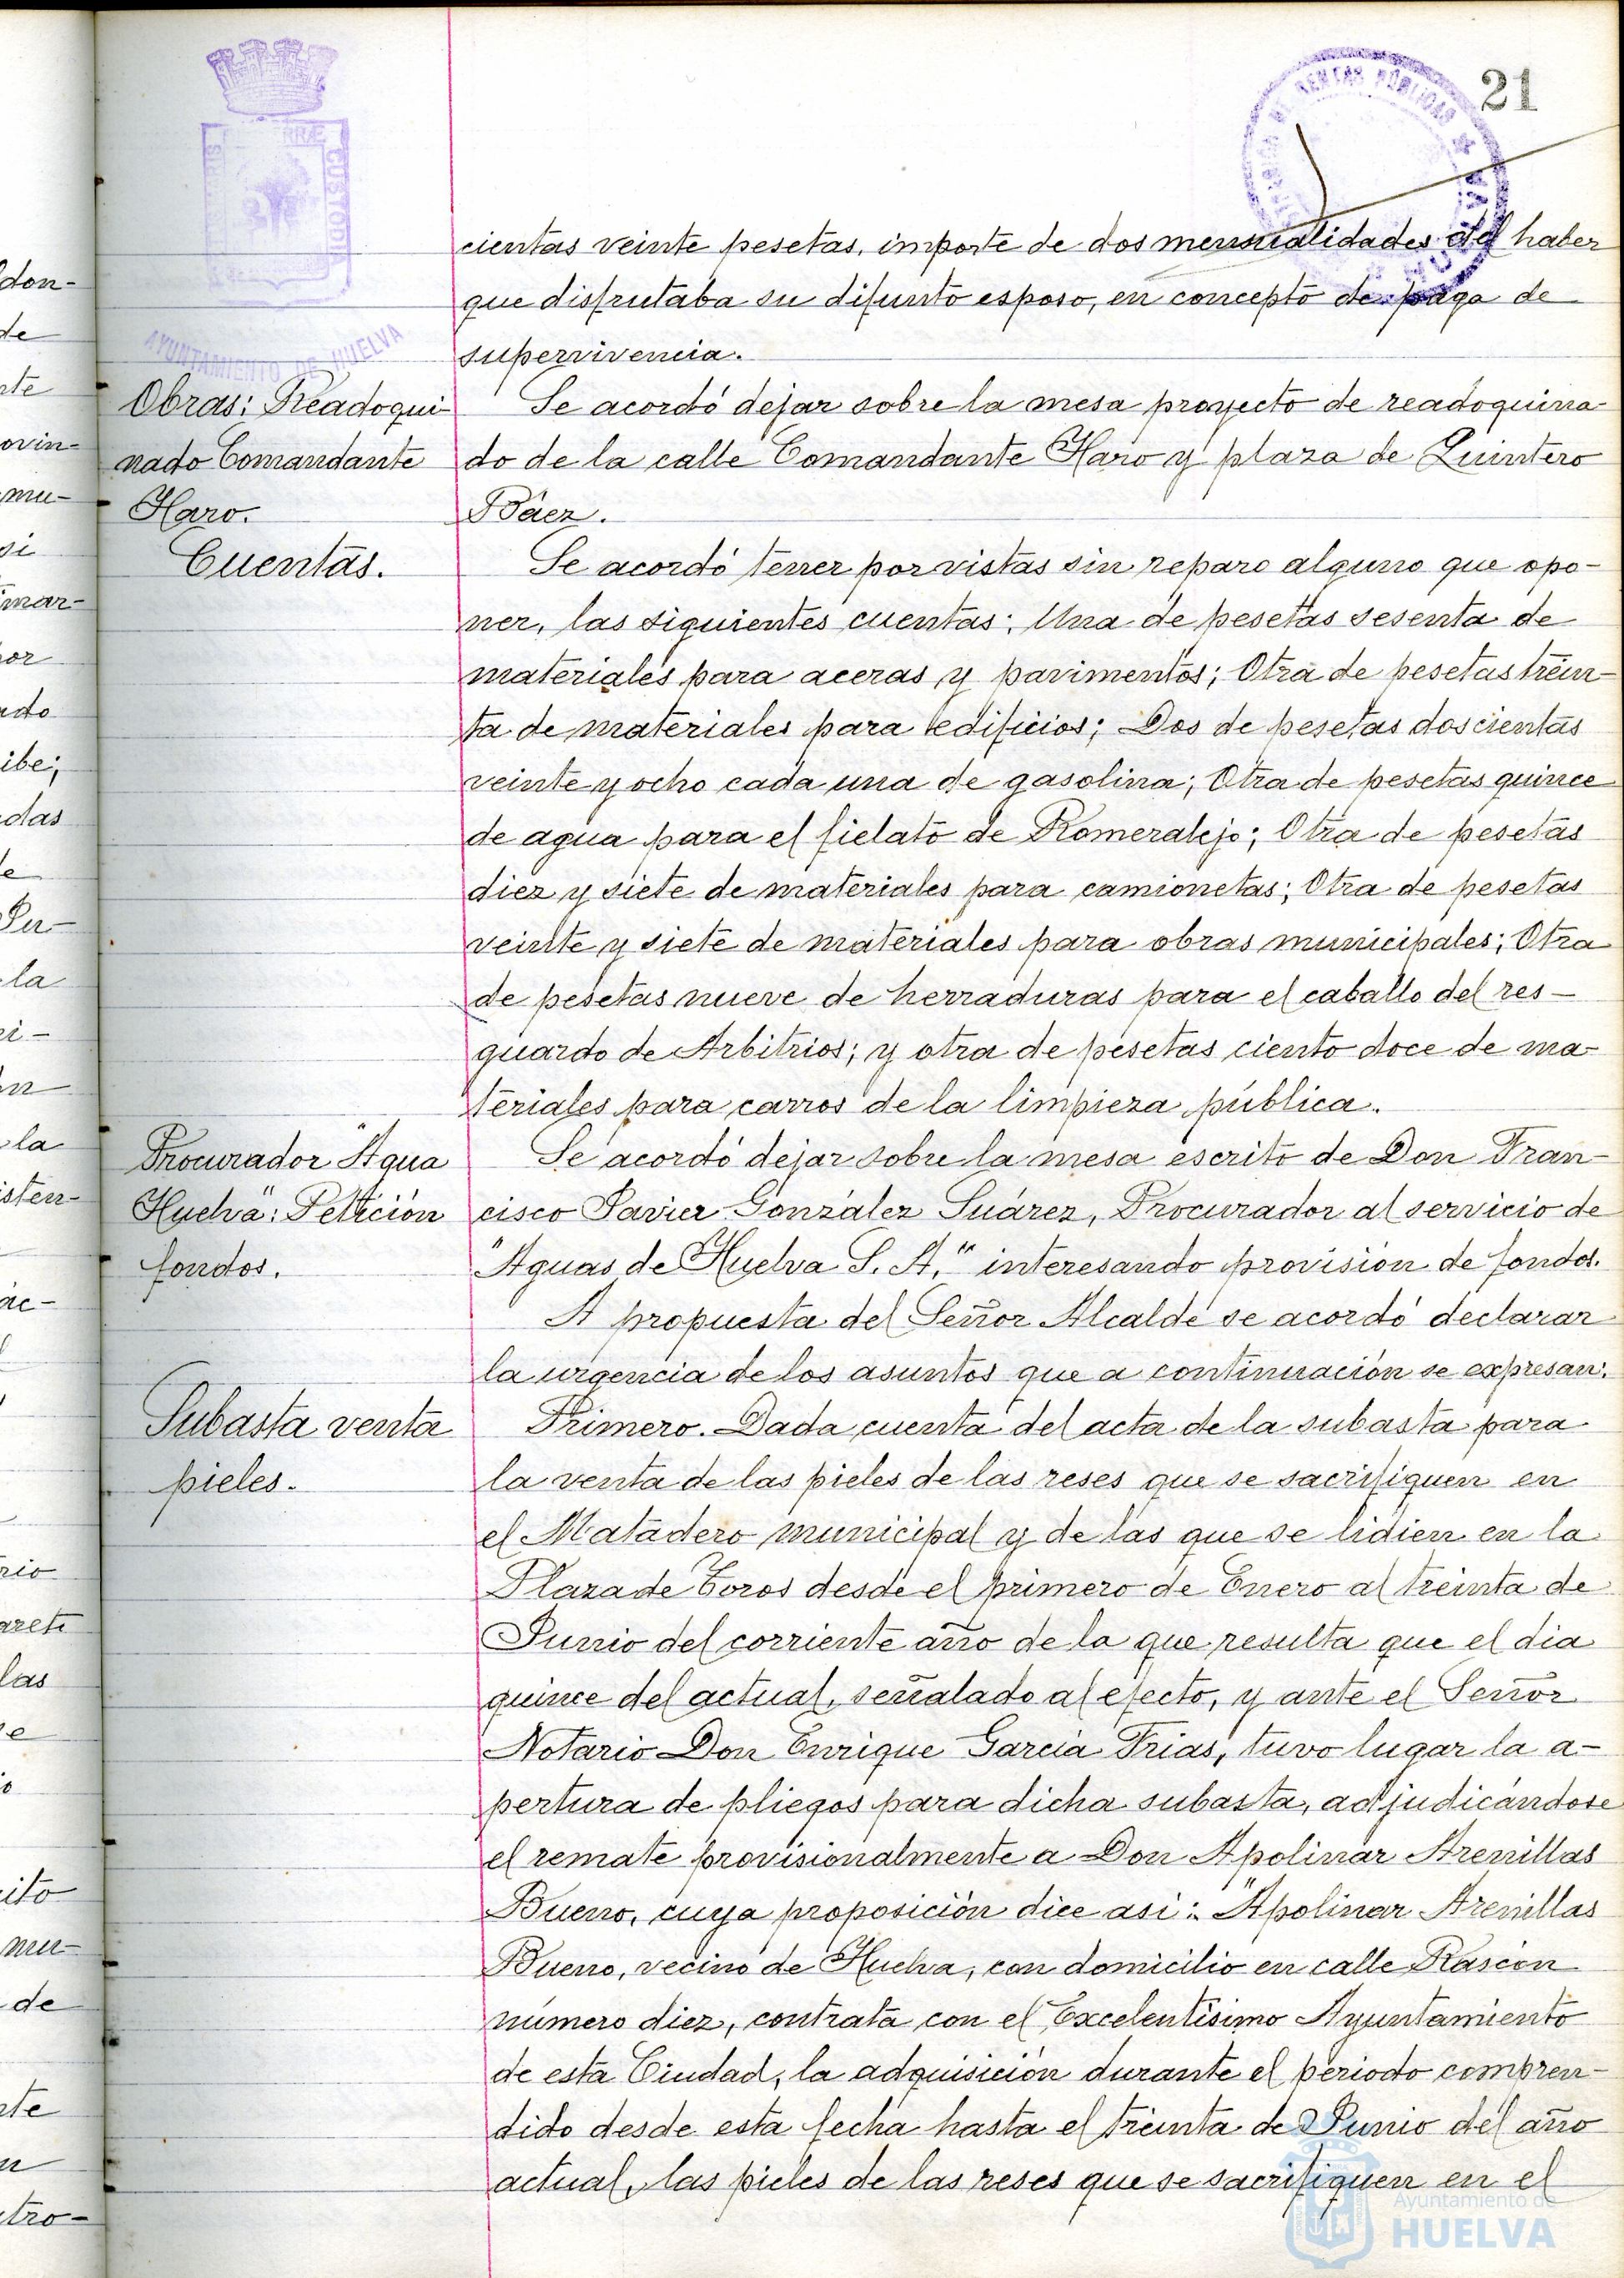 21
AYUNTAMIENTO DE HUELVA
cientas veinte pesetas, importe de dos mensualidades del haber
que disfrutaba su difunto esposo, en concepto de paga de
supervivencia.
Obras: Readoqui-
nado Comandante
Haro.
Se acordó dejar sobre la mesa proyecto de readoquina-
do de la calle Comandante Haro y plaza de Quintero
Báez.
Cuentas.
Se acordó tener por vistas sin reparo alguno que opo-
ner, las siguientes cuentas: Una de pesetas sesenta de
materiales para aceras y pavimentos; Otra de pesetas trein-
ta de materiales para edificios; Dos de pesetas doscientas
veinte y ocho cada una de gasolina; Otra de pesetas quince
de agua para el fielato de Romeralejo; Otra de pesetas
diez y siete de materiales para camionetas; Otra de pesetas
veinte y siete de materiales para obras municipales; Otra
de pesetas nueve de herraduras para el caballo del res-
guardo de Arbitrios; y otra de pesetas ciento doce de ma-
teriales para carros de la limpieza pública.
Procurador "Agua
Huelva": Petición
fondos.
Se acordó dejar sobre la mesa escrito de Don Fran-
cisco Javier González Suárez, Procurador al servicio de
"Aguas de Huelva S. A." interesando provisión de fondos.
A propuesta del Señor Alcalde se acordó declarar
la urgencia de los asuntos que a continuación se expresan:
Subasta venta
pieles.
Primero. Dada cuenta del acta de la subasta para
la venta de las pieles de las reses que se sacrifiquen en
el Matadero municipal y de las que se lidien en la
Plaza de Toros desde el primero de Enero al treinta de
Junio del corriente año de la que resulta que el dia
quince del actual, señalado al efecto, y ante el Señor
Notario Don Enrique Garcia Frias, tuvo lugar la a-
pertura de pliegos para dicha subasta, adjudicándose
el remate provisionalmente a Don Apolinar Arenillas
Bueno, cuya proposición dice asi: "Apolinar Arenillas
Bueno, vecino de Huelva, con domicilio en calle Rascón
número diez, contrata con el Excelentisimo Ayuntamiento
de esta Ciudad, la adquisición durante el periodo compren-
dido desde esta fecha hasta el treinta de Junio del año
actual, las pieles de las reses que se sacrifiquen en el
Ayuntamiento de
HUELVA